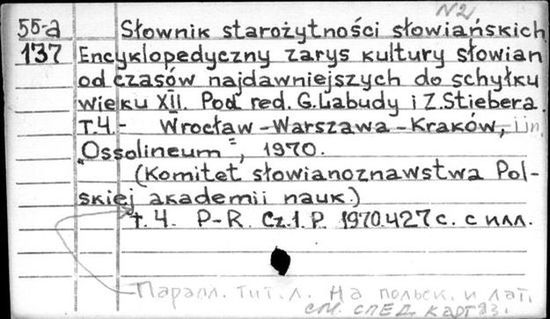 N2
55-a Słownik starożytności słowiańskich
137 Encyklopedyczny zarys kultury słowian
od czasów najdawniejszych do schyłku
wieku XII. Pod red. G. Labudy i Z. Stiebera.
T.4.- Wrocław-Warszawa-Kraków, i in.
"Ossolineum", 1970.
(Komitet słowianoznawstwa Pol-
skiej akademii nauk.)
т. 4. P-R. Cz.1. P. 1970. 427 с. с илл.
Паралл. тит. л. На польск. и лат.
см. след. карт 93.